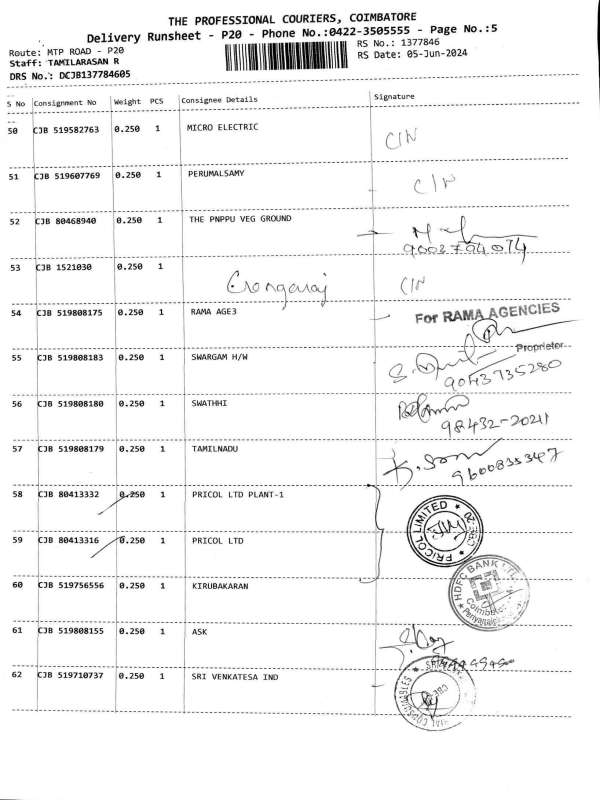 THE PROFESSIONAL COURIERS, COIMBATORE
Delivery Runsheet - P20 - Phone No.:0422-3505555 - Page No.:5
Route: MTP ROAD - P20
RS No.: 1377846
Staff: TAMILARASAN R
RS Date: 05-Jun-2024
DRS No.: DCJB137784605
S No Consignment No Weight PCS Consignee Details Signature
50 CJB 519582763 0.250 1 MICRO ELECTRIC C/N
51 CJB 519607769 0.250 1 PERUMALSAMY C/N
52 CJB 80468940 0.250 1 THE PNPPU VEG GROUND
9002794074
53 CJB 1521030 0.250 1 C/N
54 CJB 519808175 0.250 1 RAMA AGE3 For RAMA AGENCIES
Proprietor
55 CJB 519808183 0.250 1 SWARGAM H/W
9043735280
56 CJB 519808180 0.250 1 SWATHHI
98432-20211
57 CJB 519808179 0.250 1 TAMILNADU
9600835347
58 CJB 80413332 0.250 1 PRICOL LTD PLANT-1
PRICOL LIMITED
59 CJB 80413316 0.250 1 PRICOL LTD
60 CJB 519756556 0.250 1 KIRUBAKARAN
HDFC BANK LTD
Coimbatore
61 CJB 519808155 0.250 1 ASK
62 CJB 519710737 0.250 1 SRI VENKATESA IND